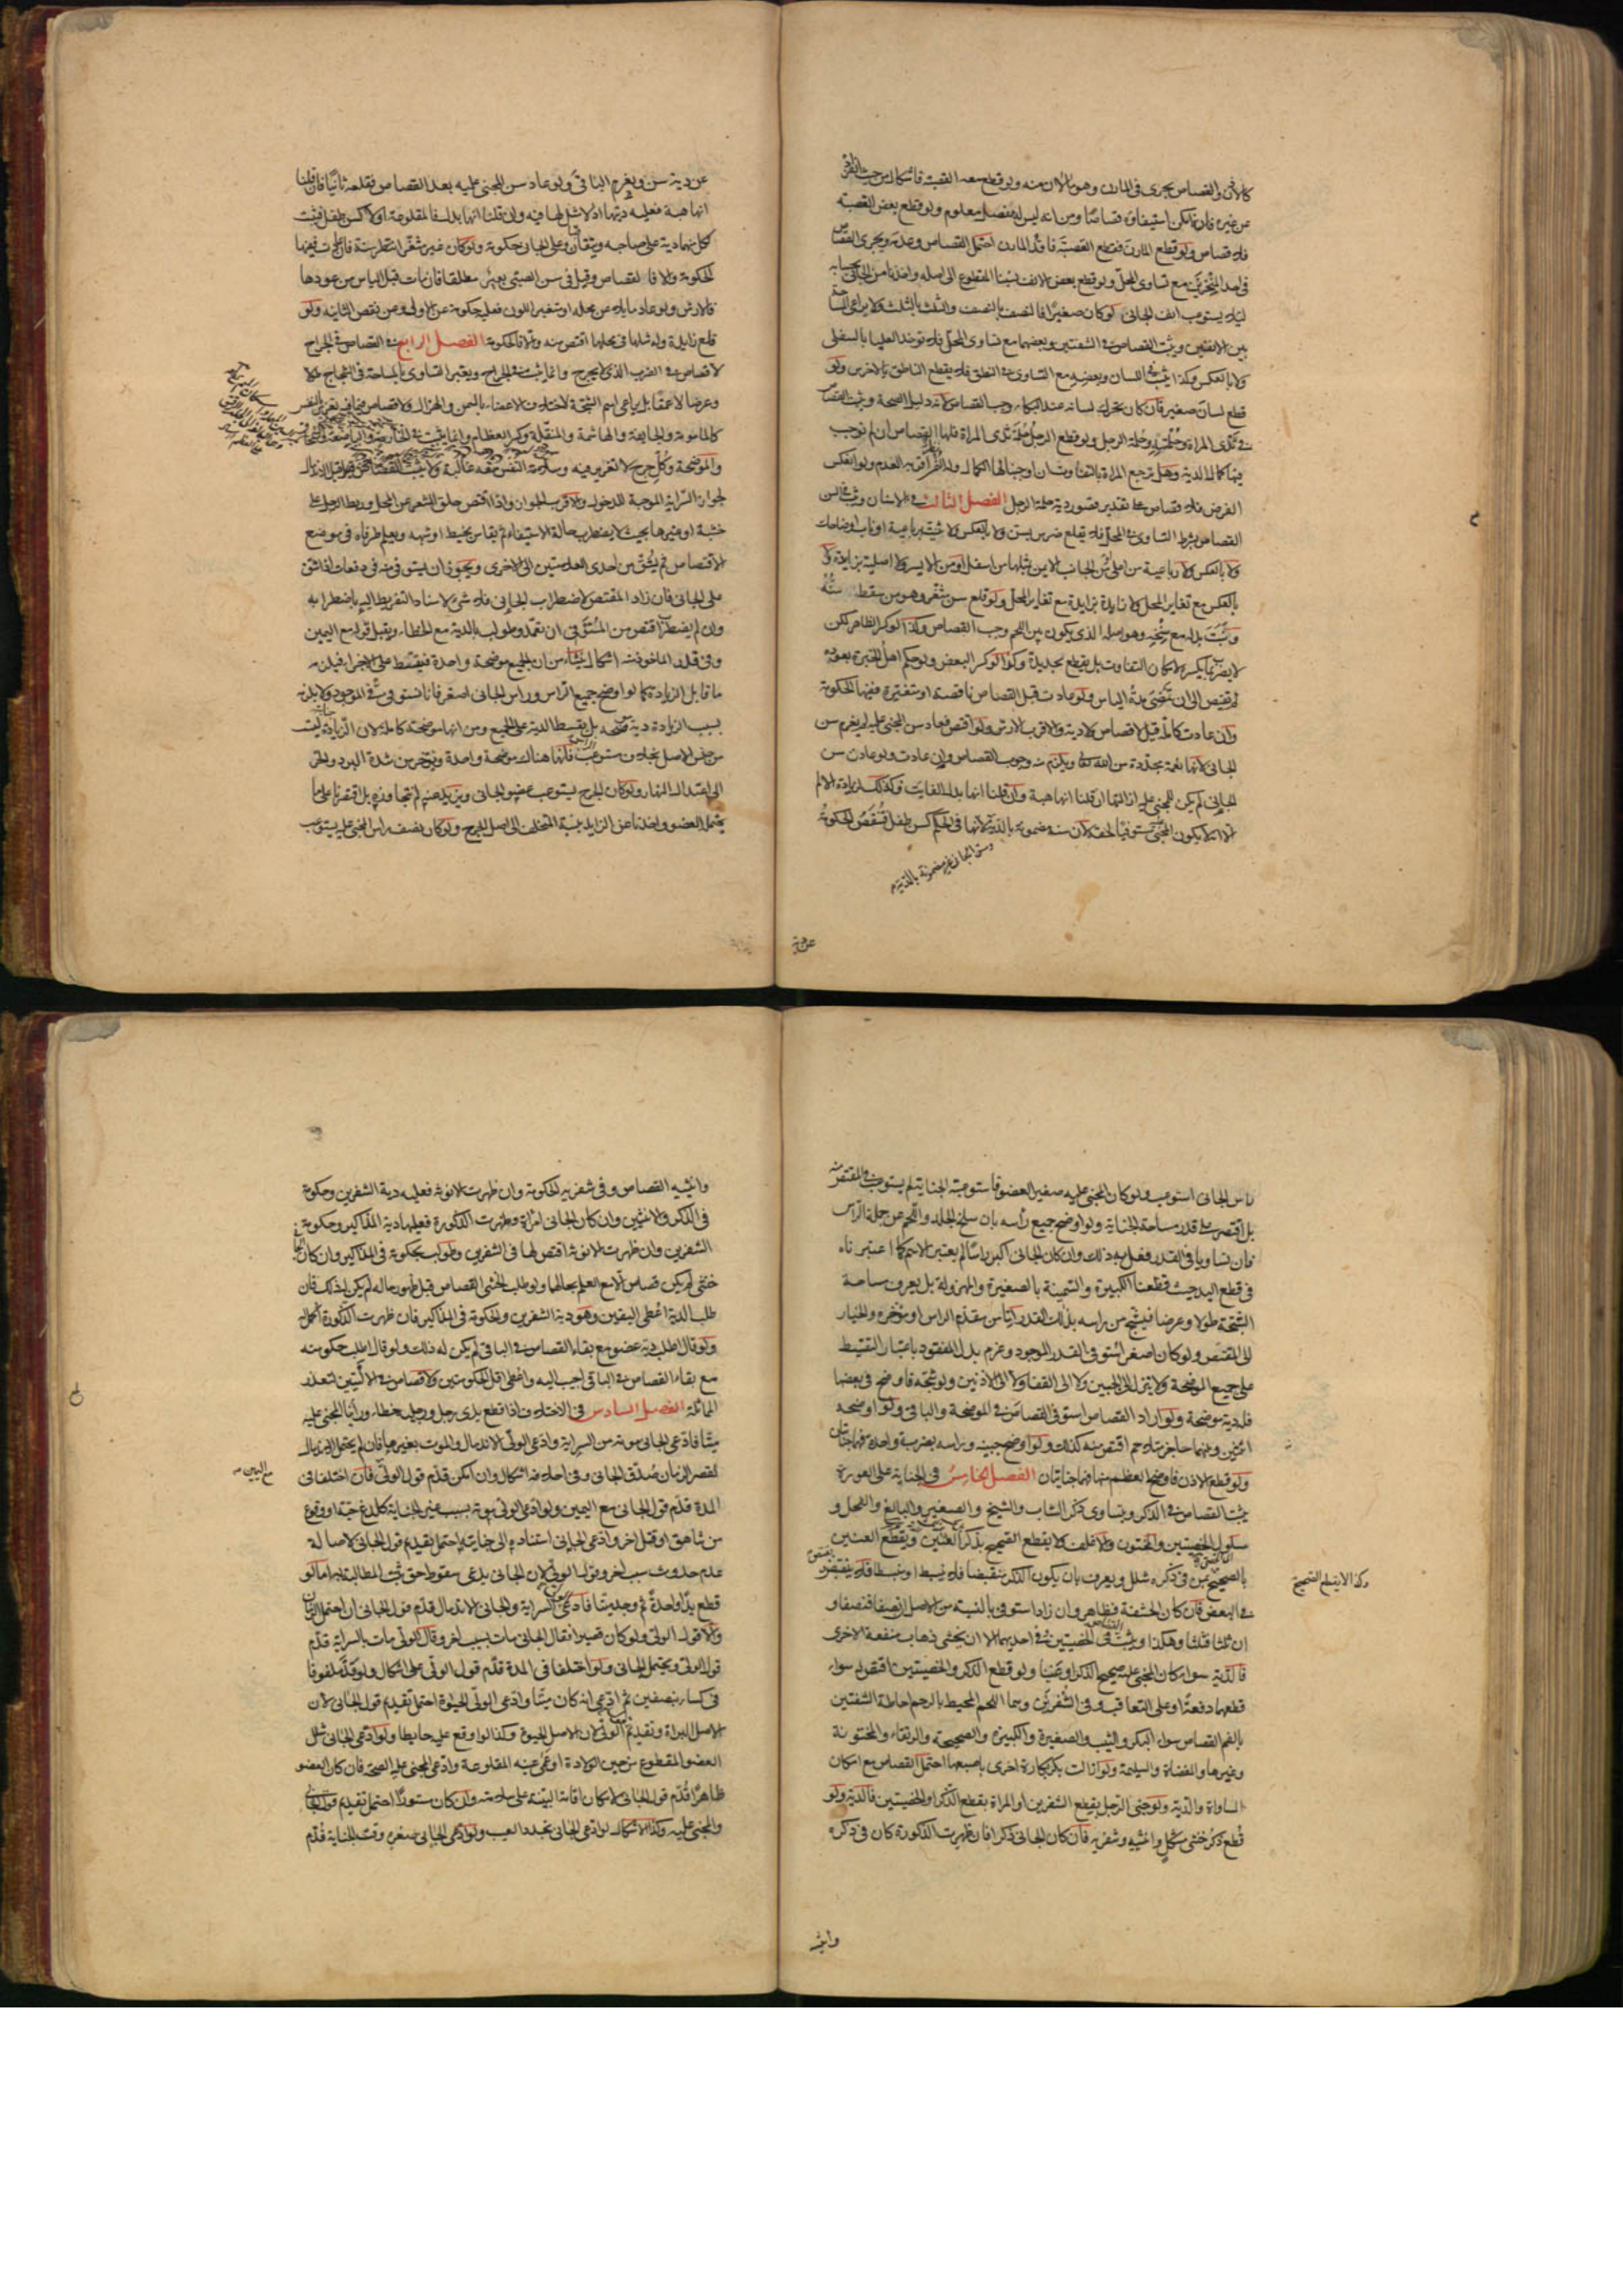 كالاذن والقصاص يجرى فى المارن وهو ما لان منه ولو قطع معه القصبة فاشكال من حيث انفراده
عن غيره فامكن استيفاؤه قصاصا ومن انه ليس له مفصل معلوم ولو قطع بعض القصبة
فلا قصاص ولو قطع المارن فقطع القصبة فاقد المارن احتمل القصاص وعدمه ويجرى القصاص
فى احد المنخرين مع تساوى المحل ولو قطع بعض الانف نسبنا المقطوع الى اصله واخذنا من الجانى بحسابه
لئلا يستوعب انف الجانى لو كان صغيرا فالنصف بالنصف والثلث بالثلث ولا يراعى المساحة
بين الانفين ويثبت القصاص فى الشفتين وبعضهما مع تساوى المحل فلا توخذ العليا بالسفلى
ولا بالعكس وكذا يثبت فى اللسان وبعضه مع التساوى فى النطق فلا يقطع الناطق بالاخرس ولو
قطع لسان صغير فان كان يحرك لسانه عند البكاء وجب القصاص لانه دليل الصحة ويثبت القصاص
فى ثدى المراة وحلمته وحلمة الرجل ولو قطع الرجل حلمة ثدى المراة فلها القصاص ان لم نوجب
فيها كمال الدية وهل ترجع المراة بالتفاوت ان اوجبنا لها الكمال ولا اقربه العدم ولو انعكس
الفرض فلا قصاص على تقدير قصور دية حلمة الرجل الفصل الثالث فى الاسنان ويثبت فى السن
القصاص بشرط التساوى فى المحل فلا يقلع ضرس بسن ولا بالعكس ولا ثنية برباعية او ناب او ضاحك
ولا بالعكس ولا رباعية من اعلى من الجانب الايمن بمثلها من اسفل او من الايسر ولا اصلية بزايدة ولا
بالعكس مع تغاير المحل ولا زايدة بزايدة مع تغاير المحل ولو قلع سن مثغر وهو من سقط سنه
ونبت بدله مع سنخه وهو اصله الذى يكون بين اللحم وجب القصاص وكذا لو كسر الظاهر لكن
لا يضربها بكسره لامكان التفاوت بل يقطع بحديدة وكذا لو كسر البعض ولو حكم اهل الخبرة بعوده
لم يقتص الى ان تمضى مدة الياس ولو عادت قبل القصاص ناقصة او متغيرة ففيها الحكومة
وان عادت كاملة قيل لا قصاص ولا دية والاقرب الارش ولو اقتص فعاد سن المجنى عليه لم يغرم سن
الجانى لانها نعمة مجددة من الله تعالى ويلزم منه وجوب القصاص وان عادت ولو عادت سن
الجانى لم يكن للمجنى عليه ازالتها ان قلنا انها هبة وان قلنا انها بدل الفايت فكذلك لزيادة الالم
الا انه لا يكون المجنى عليه مستوفيا لحقه لان سنه مضمونة بالدية لانها فى الحكم كسن طفل فتنقص الحكومة
وسن الجانى غير مضمونة بالدية
عن دية
عن دية سن ويغرم الباقى ولو عاد سن المجنى عليه بعد القصاص فقلعه ثانيا فان قلنا
انها هبة فعليه ديتها اذ لا مثل لها فيه وان قلنا انها بدل فالمقلوعة اولا كسن طفل فيثبت
لكل منهما دية على صاحبه ويتقاصان وعلى الجانى حكومة ولو كان غير مثغر انتظر سنة فان عادت ففيها
الحكومة والا فالقصاص وقيل فى سن الصبى بعير مطلقا فان مات قبل الياس من عودها
فالارش ولو عاد مايلا عن محله او متغير اللون فعليه حكومة عن الاولى وعن نقص الثانية ولو
قلع زايدة وله مثلها فى محلها اقتص منه والا فالحكومة الفصل الرابع فى القصاص فى الجراح
لا قصاص فى الضرب الذى لا يجرح وانما يثبت فى الجراح ويعتبر التساوى بالمساحة فى الشجاج طولا
وعرضا لا عمقا بل يراعى اسم الشجة لاختلاف الاعضاء بالسمن والهزال ولا قصاص فيما فيه تغرير بالنفس
كالمامومة والجايفة والهاشمة والمنقلة وكسر العظام وانما يثبت فى الحارصة والباضعة
والموضحة وكل جرح لا تغرير فيه وسلامة النفس معه غالبة ولا يثبت القصاص قبل الاندمال
لجواز السراية الموجبة للدخول والاقرب الجواز واذا اقتص حلق الشعر عن المحل وربط الرجل على
خشبة او غيرها بحيث لا يضطرب حالة الاستيفاء ثم يقاس بخيط او شبهه ويعلم طرفاه فى موضع
الاقتصاص ثم يشق من احدى العلامتين الى الاخرى ويجوز ان يستوفى منه فى دفعات اذا شق
على الجانى فان زاد المقتص لاضطراب الجانى فلا شىء لاستناد التفريط اليه باضطرابه
وان لم يضطرب اقتص من المستوفى ان تعمد وطولب بالدية مع الخطاء ويقبل قوله مع اليمين
وفى قدر الماخوذ منه اشكال ينشاء من ان الجميع موضحة واحدة فيقسط على الاجزاء فيلزمه
ما قابل الزيادة كما لو اوضح جميع الراس وراس الجانى اصغر فانا نستوفى الموجود ولا يلزمه
بسبب الزيادة دية موضحة بل يقسط الدية على الجميع ومن انها موضحة كاملة لان الزيادة ليست
من جنس الاصل بخلاف مستوعب الراس فانها هناك موضحة واحدة ويؤخر من شدة البرد والحر
الى اعتدال النهار ولو كان الجرح يستوعب عضو الجانى ويزيد عنه لم نتجاوزه بل اقتصرنا على ما
يحتمل العضو واخذنا عن الزايد بنسبة المتخلف الى اصل الجرح ولو كان نصف راس المجنى عليه يستوعب
راس الجانى استوعب ولو كان المجنى عليه صغير العضو فاستوعبته الجناية لم يستوعب فى المقتص منه
بل اقتصر على قدر مساحة الجناية ولو اوضح جميع رأسه بان سلخ الجلد واللحم عن جملة الراس
فان تساويا فى القدر فعل به ذلك وان كان الجانى اكبر راسا لم يعتبر الاسم كما اعتبرناه
فى قطع اليد حيث قطعنا الكبيرة والسمينة بالصغيرة والمهزولة بل يعرف مساحة
الشجة طولا وعرضا فيشج من راسه بذلك القدر اما من مقدم الراس او مؤخره والخيار
الى المقتص ولو كان اصغر استوفى القدر الموجود وغرم بدل المفقود باعتبار التقسيط
على جميع الموضحة ولا ينزل الى الجبين ولا الى القفاء ولا الى الاذنين ولو شجه فاوضح فى بعضها
فله دية موضحة ولو اراد القصاص استوفى القصاص فى الموضحة والباقى ولو اوضحه
اثنتين وبينهما حاجز بلا حم اقتص منه كذلك ولو اوضح جبينه وراسه بضربة واحدة فهما جنايتان
ولو قطع الاذن فاوضح العظم منها فهما جنايتان الفصل الخامس فى الجناية على العورة
يثبت القصاص فى الذكر ويتساوى ذكر الشاب والشيخ والصغير والبالغ والفحل و
مسلول الخصيتين والمختون والاغلف ولا يقطع الصحيح بذكر العنين ويقطع العنين
بالصحيح ومن فى ذكره شلل ويعرف بان يكون الذكر منقبضا فلا ينبسط او منبسطا فلا ينقبض
وكذا لا يقطع الصحيح
فى البعض فان كان الحشفة فظاهر وان زاد استوفى بالنسبة من الاصل ان نصفا فنصفا و
ان ثلثا فثلثا وهكذا ويثبت فى الخصيتين وفى احديهما الا ان يخشى ذهاب منفعة الاخرى
فالدية سواء كان المجنى عليه صحيح الذكر او عنينا ولو قطع الذكر والخصيتين اقتص له سواء
قطعهما دفعة او على التعاقب وفى الشفرين وهما اللحم المحيط بالرحم احاطة الشفتين
بالفم القصاص سواء البكر والثيب والصغيرة والكبيرة والصحيحة والرتقاء والمختونة
وغيرها والمفضاة والسليمة ولو ازالت بكر بكارة اخرى باصبعها احتمل القصاص مع امكان
المساواة والدية ولو جنى الرجل بقطع الشفرين او المراة بقطع الذكر او الخصيتين فالدية ولو
قطع ذكر خنثى مشكل وانثييه وشفريه فان كان الجانى ذكرا فان ظهرت الذكورة كان فى ذكره
وانثييه
وانثييه القصاص وفى شفريه الحكومة وان ظهرت الانوثة فعليه دية الشفرين وحكومة
فى الذكر والانثيين وان كان الجانى امراة وظهرت الذكورة فعليها دية المذاكير وحكومة
الشفرين وان ظهرت الانوثة اقتص لها فى الشفرين وطولب بحكومة فى المذاكير وان كان الجانى
خنثى لم يكن قصاص الا مع العلم بحالهما ولو طلب الخنثى القصاص قبل ظهور حاله لم يكن له ذلك فان
طلب الدية اعطى اليقين وهو دية الشفرين والحكومة فى المذاكير فان ظهرت الذكورة اكمل له
ولو قال اطلب دية عضو مع بقاء القصاص فى الباقى لم يكن له ذلك ولو قال اطلب حكومته
مع بقاء القصاص فى الباقى اجيب اليه واعطى اقل الحكومتين ولا قصاص فى الاليتين لتعذر
المماثلة الفصل السادس فى الاختلاف اذا قطع يدى رجل ورجليه خطاء وراينا المجنى عليه
ميتا فادعى الجانى موته من السراية وادعى الولى الاندمال والموت بغيرها فان لم يحتمل الاندمال
لقصر الزمان صدق الجانى وفى احلافه اشكال وان امكن قدم قول الولى فان اختلفا فى
مع اليمين
المدة قدم قول الجانى مع اليمين ولو ادعى الولى موته بسبب غير الجناية كلدغ حية او وقوع
من شاهق او قتل اخر وادعى الجانى استناده الى جنايته احتمل تقديم قول الجانى لاصالة
عدم حدوث سبب اخر وقول الولى لان الجانى يدعى سقوط حق ثبت المطالبة به اما لو
قطع يدا واحدة ثم وجد ميتا فادعى الولى السراية والجانى الاندمال قدم قول الجانى ان احتمل الزمان
والا قول الولى ولو كان قصيرا فقال الجانى مات بسبب اخر وقال الولى مات بالسراية قدم
قول الولى ويحتمل الجانى ولو اختلفا فى المدة قدم قول الولى على اشكال ولو قد ملفوفا
فى كساء بنصفين ثم ادعى انه كان ميتا وادعى الولى الحيوة احتمل تقديم قول الجانى لان
الاصل البراءة وتقديم قول الولى لان الاصل الحيوة وكذا لو اوقع عليه حايطا ولو ادعى الجانى شلل
العضو المقطوع من حين الولادة او عمى عينه المقلوعة وادعى المجنى عليه الصحة فان كان العضو
ظاهرا قدم قول الجانى لامكان اقامة البينة على سلامته وان كان مستورا احتمل تقديم قول الجانى
والمجنى عليه وكذا الاشكال لو ادعى الجانى تجدد العيب ولو ادعى الجانى صغره وقت الجناية قدم